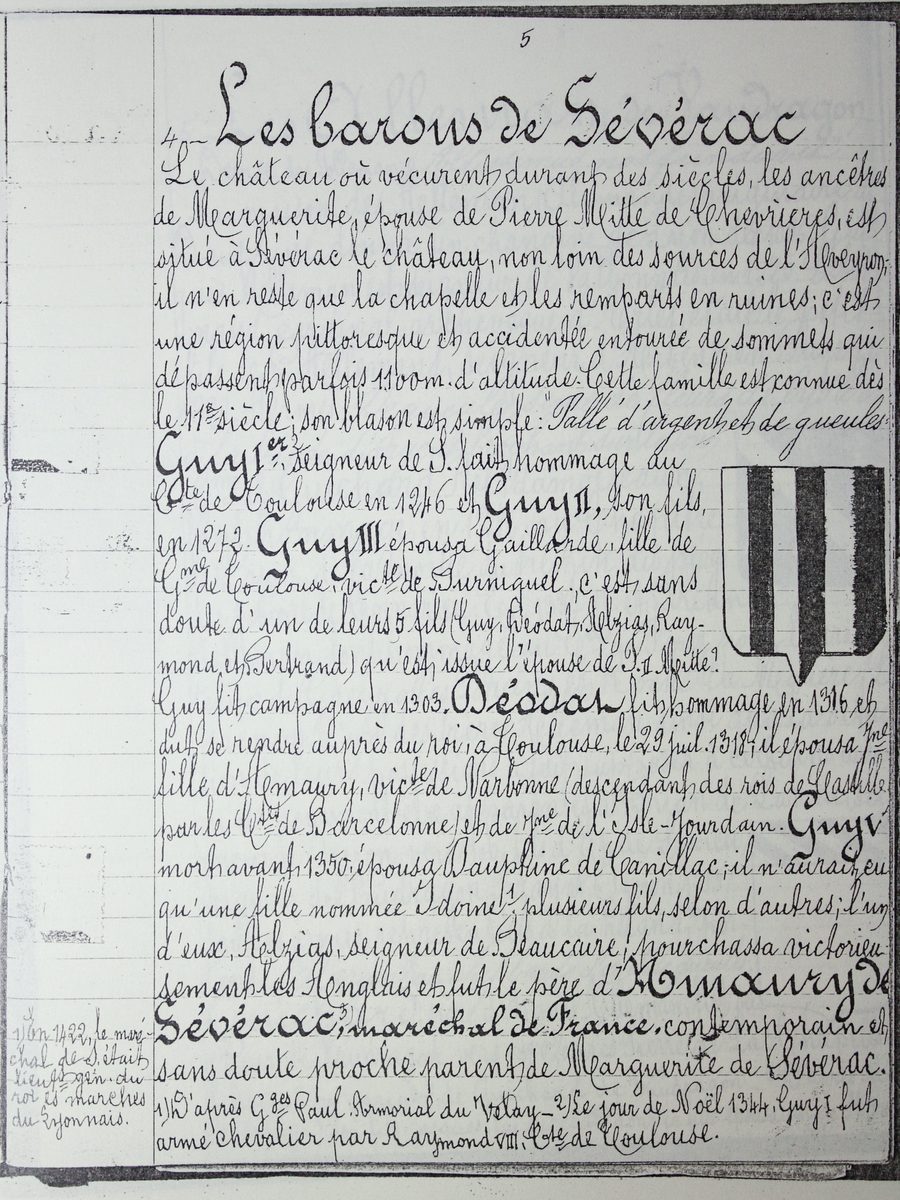 5
4_ Les barons de Sévérac
Le château où vécurent, durant des siècles, les ancêtres
de Marguerite, épouse de Pierre Mitte de Chevrières, est
situé à Sévérac le château, non loin des sources de l'Aveyron;
il n'en reste que la chapelle et les remparts en ruines; c'est
une région pittoresque et accidentée entourée de sommets qui
dépassent parfois 1100m. d'altitude. Cette famille est connue dès
le 11e siècle; son blason est simple: "Pallé d'argent et de gueules"
Guy Ier 2), seigneur de S. fait hommage au
Cte de Toulouse en 1246 et Guy II, son fils,
en 1272. Guy III épousa Gaillarde, fille de
Gme de Toulouse, victe de Burniquel; c'est sans
doute d'un de leurs 5 fils (Guy, Déodat, Alzias, Ray-
mond, et Bertrand) qu'est issue l'épouse de P. II Mitte?
Guy fit campagne en 1303. Déodat fit hommage en 1316 et
dut se rendre auprès du roi, à Toulouse, le 29 juil. 1318; il épousa Jne
fille d'Amaury, victe de Narbonne (descendant des rois de Castille
par les Ctes de Barcelonne) et de Jne de l'Isle-Jourdain. Guy V
mort avant 1350, épousa Dauphine de Canillac; il n'aurait eu
qu'une fille nommée Idoine 1, plusieurs fils, selon d'autres; l'un
d'eux, Alzias, seigneur de Beaucaire, pourchassa victorieu-
sement les Anglais et fut le père d'Amaury de
Sévérac, 3) maréchal de France, contemporain et
sans doute proche parent de Marguerite de Sévérac.
1) D'après Gges Paul. Armorial du Velay_ 2) Le jour de Noël 1344, Guy I fut
armé chevalier par Raymond VIII, Cte de Toulouse.
3) En 1422, le maré-
chal de S. était
lieutt gén. du
roi ès marches
du Lyonnais.